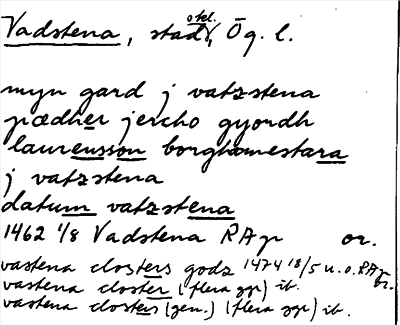 Vadstena, stad, okl. Ög. l.
myn gard j vatzstena
pædher jercho gyordh
laurensson borghamestara
j vatzstena
datum vatzstena
1462 1/8 Vadstena RAp or.
vastena closters godz 1474 18/5 u.o. RAp or.
vastena closter (flera ggr) ib.
vastena closters (gen.) (flera ggr) ib.